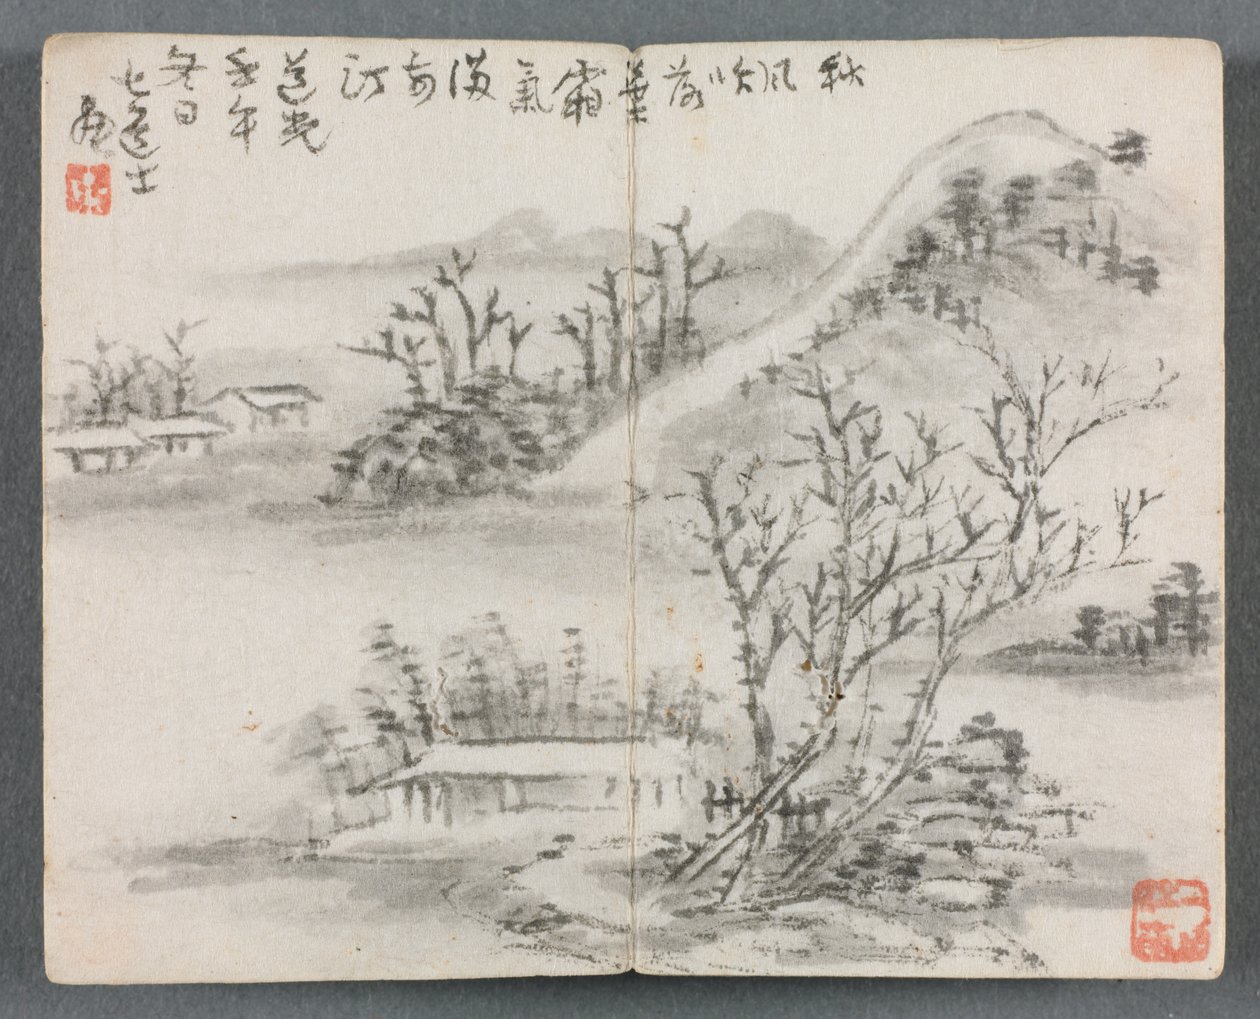 秋風吹落葉霜氣滿前江
道光
壬午
冬日
七道士
畫